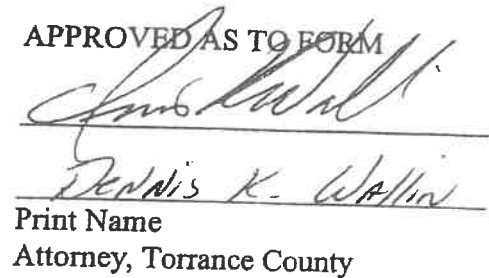 APPROVED AS TO FORM
Dennis K. Wallin
Print Name
Attorney, Torrance County